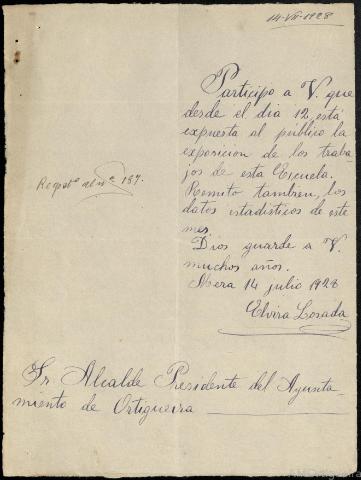 14-VII-1928
Participo a V. que
desde el dia 12, está
expuesta al público la
exposicion de los traba-
jos de esta Escuela.
Remito tambien, los
datos estadisticos de este
mes.
Dios guarde a V.
muchos años.
Mera 14 julio 1928
Elvira Losada
al nº 187.
Sr. Alcalde Presidente del Ayunta-
miento de Ortigueira